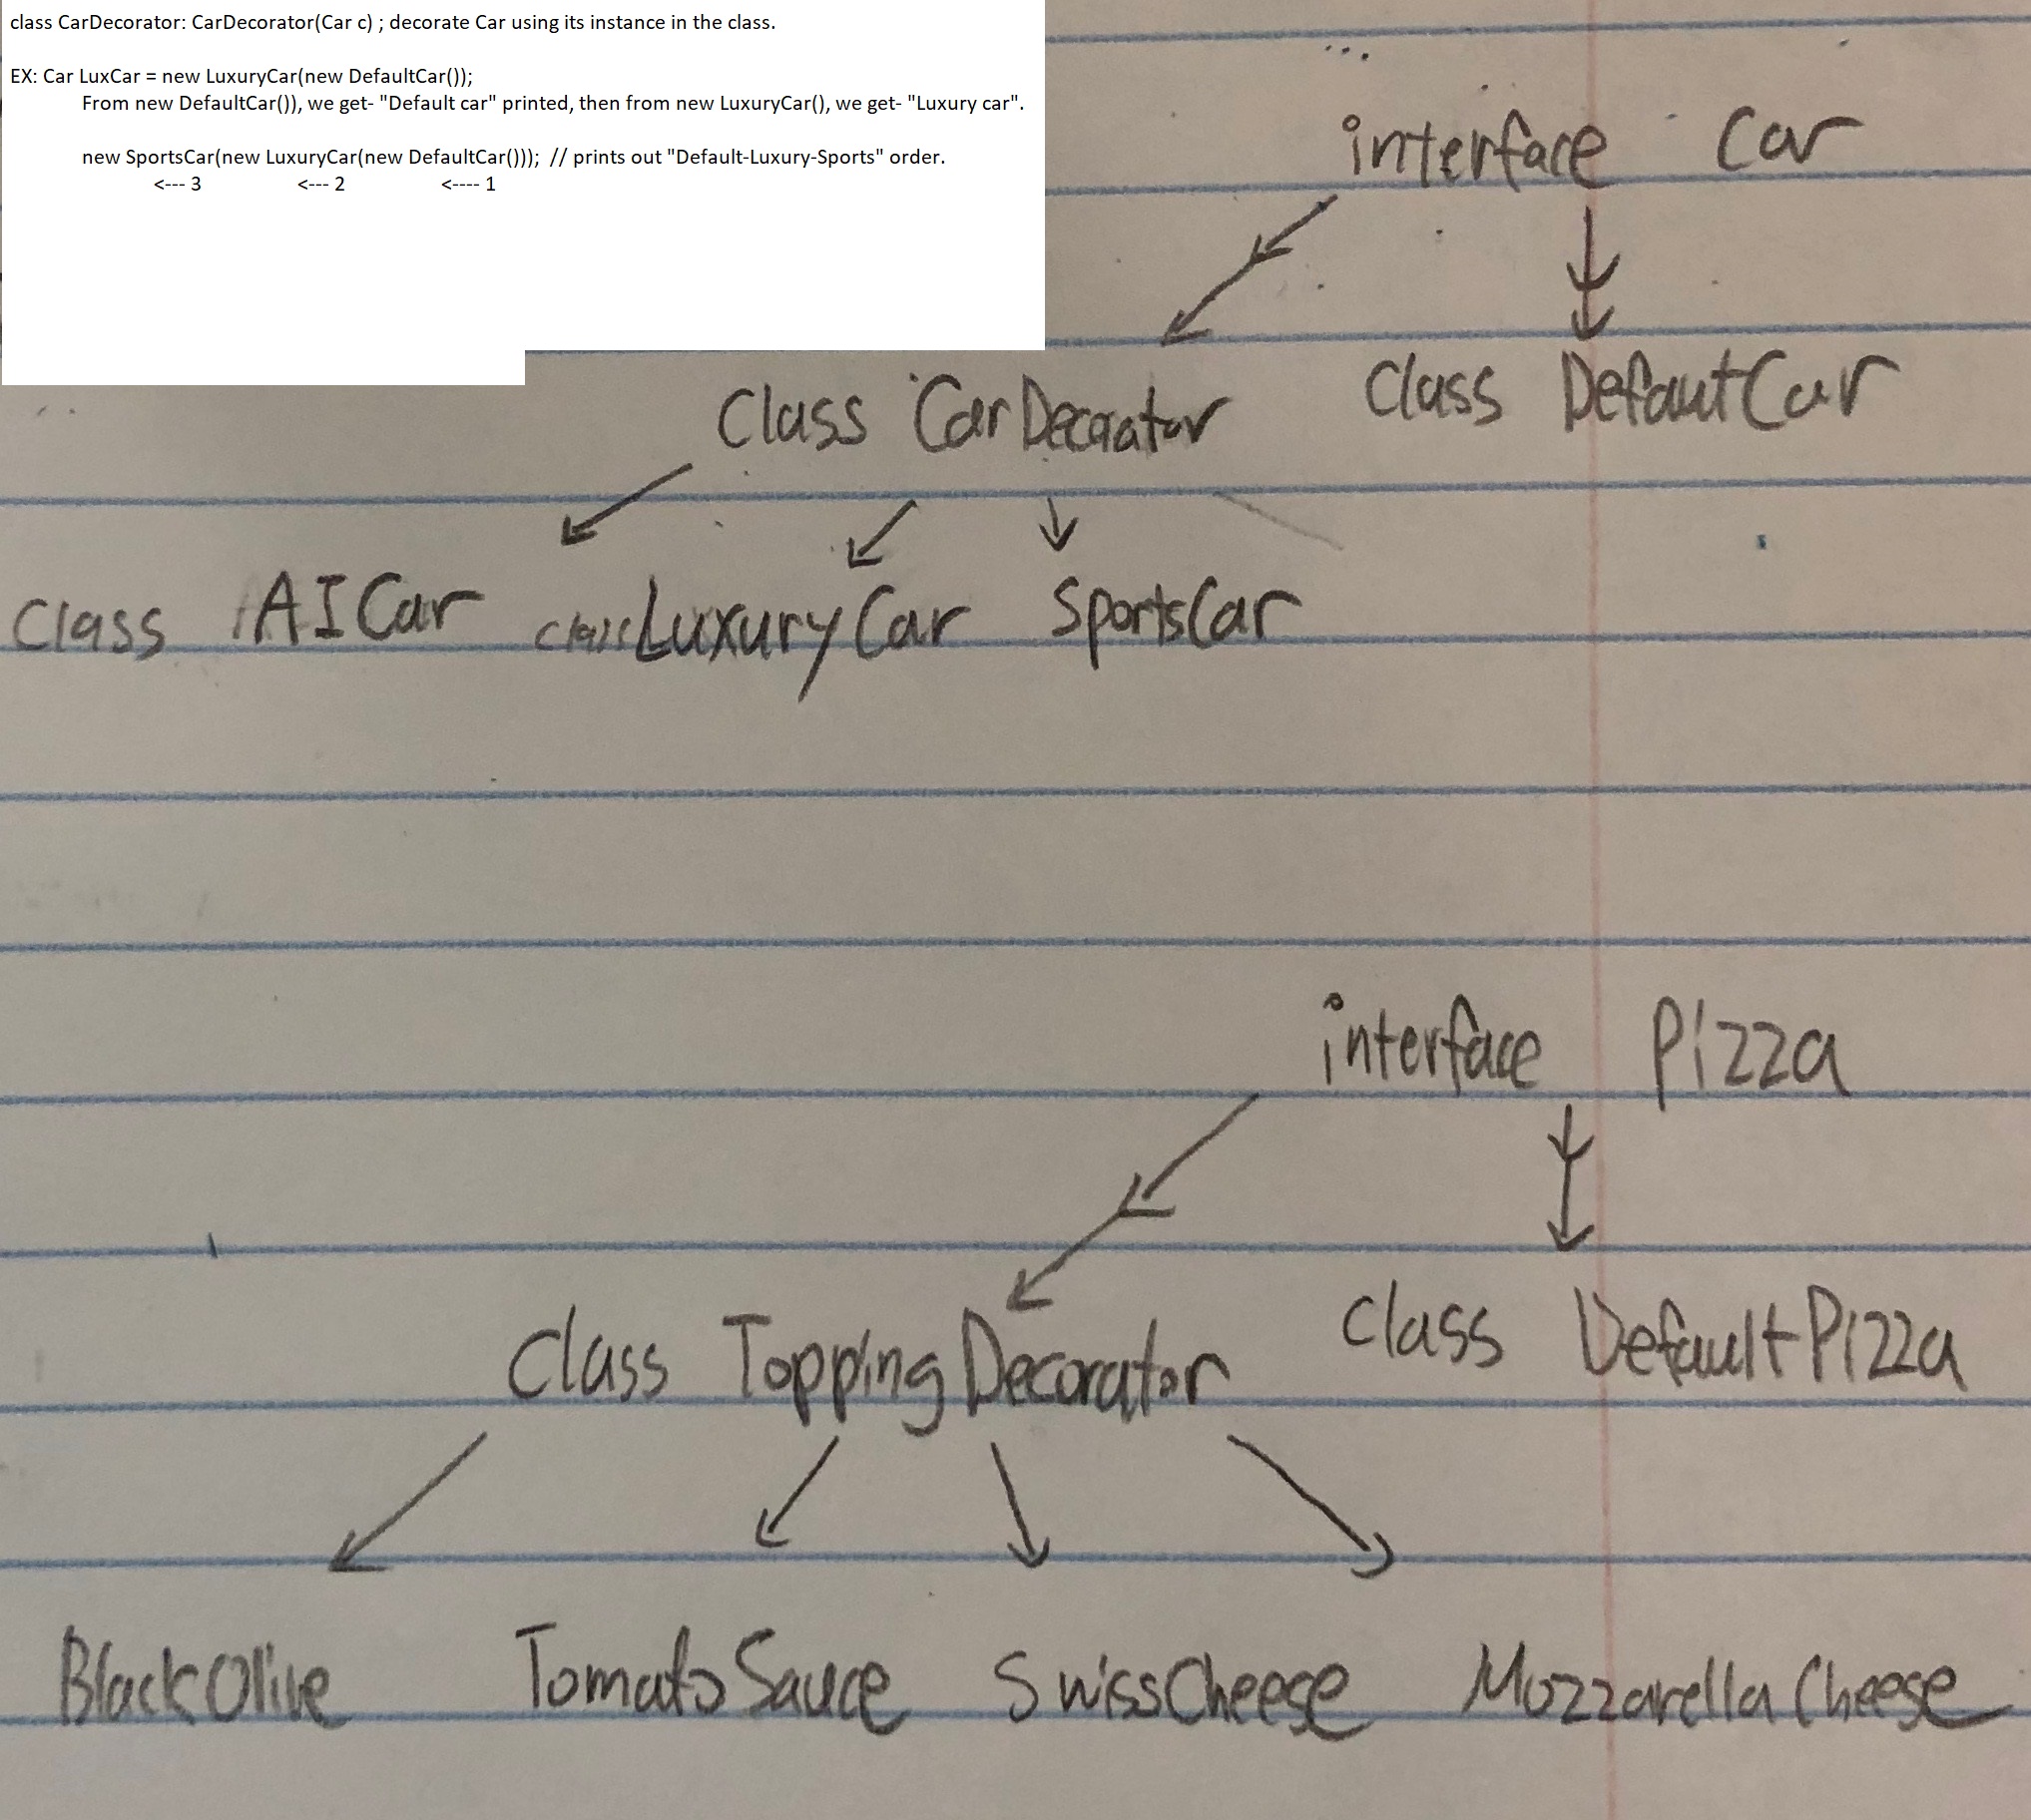 class CarDecorator: CarDecorator(Car c) ; decorate Car using its instance in the class.
EX: Car LuxCar = new LuxuryCar(new DefaultCar());
From new DefaultCar()), we get- "Default car" printed, then from new LuxuryCar(), we get- "Luxury car".
new SportsCar(new LuxuryCar(new DefaultCar())); // prints out "Default-Luxury-Sports" order.
<--- 3 <--- 2 <---- 1
interface Car
Class CarDecorator Class DefautCar
Class AICar class LuxuryCar SportsCar
interface Pizza
Class ToppingDecorator Class DefaultPizza
BlackOlive TomatoSauce SwissCheese MozzarellaCheese